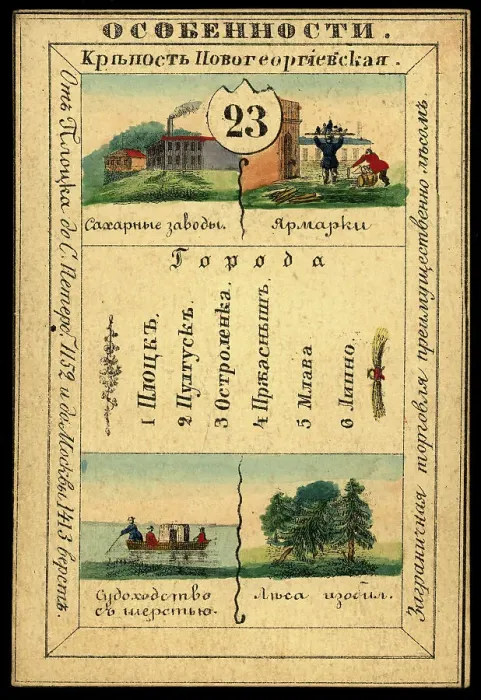 ОСОБЕННОСТИ.
Крѣпость Новогеоргіевская.
23
Сахарные заводы.
Ярмарки
Города
1 ПЛОЦКЪ.
2 Пултускъ.
3 Остроленка.
4 Пржаснышъ.
5 Млава
6 Липно.
Судоходство
съ шерстью.
Лѣса изобил.
Отъ Плоцка до С. Петерб. 1152 и до Москвы 1413 верстъ.
Заграничная торговля преимущественно лѣсомъ